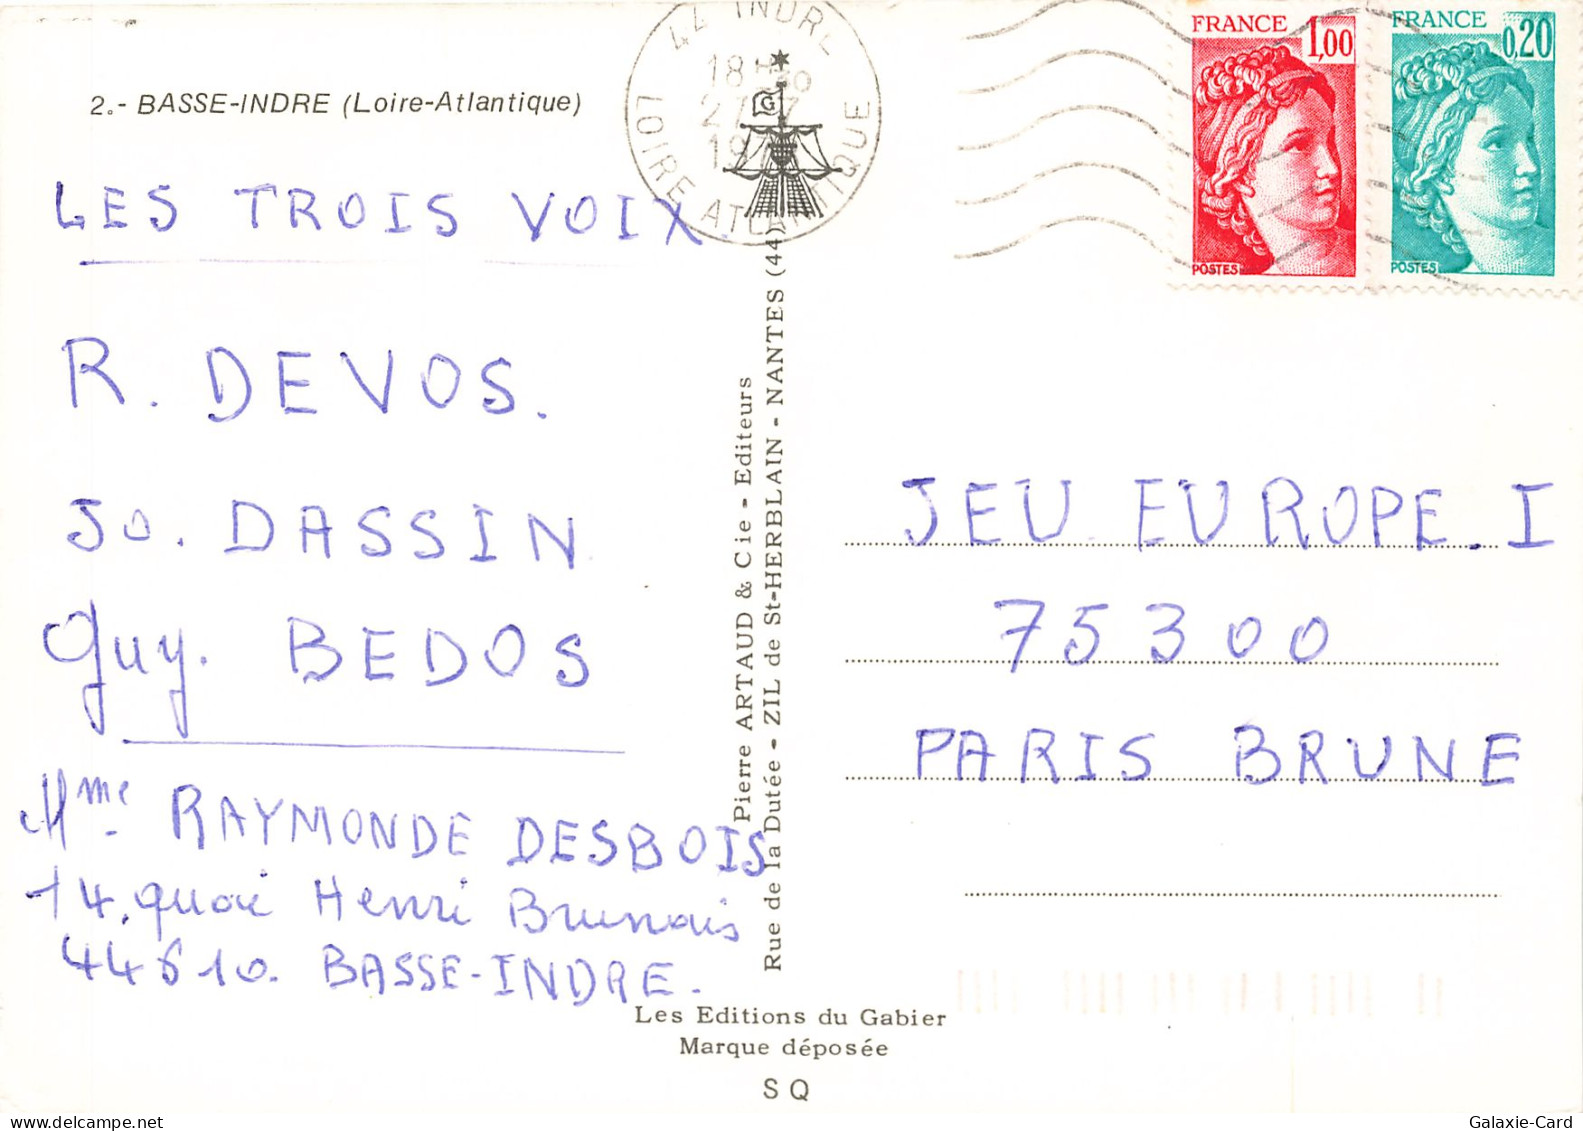 2.- BASSE-INDRE (Loire-Atlantique)
44 INDRE
18 H
27-7
LOIRE ATLANTIQUE
G
FRANCE
1,00
POSTES
FRANCE
0,20
POSTES
LES TROIS VOIX
R. DEVOS.
Jo. DASSIN
Guy. BEDOS
Mme RAYMONDE DESBOIS
14, quai Henri Brunais
44610. BASSE-INDRE.
Pierre ARTAUD & Cie - Editeurs
Rue de la Dutée - ZIL de St-HERBLAIN - NANTES (44)
JEU EUROPE. I
75300
PARIS BRUNE
Les Editions du Gabier
Marque déposée
S Q
Galaxie-Card